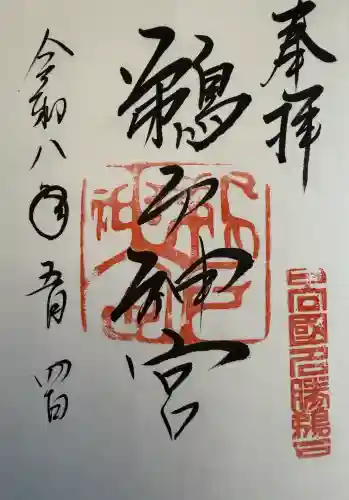 奉拝
鵜戸神宮
令和八年五月四日
日向國名勝鵜戸